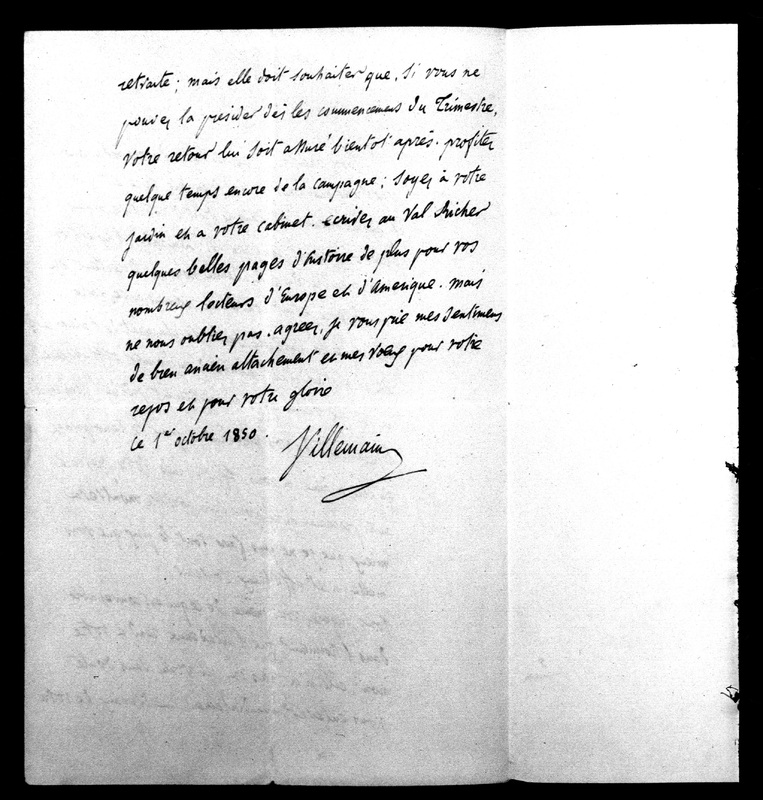 retraite ; mais elle doit souhaiter que, si vous ne
pouvez la presider dès les commencemens du Trimestre,
votre retour lui soit assuré bientot après. profitez
quelque temps encore de la campagne ; soyez à votre
jardin et a votre cabinet. ecrivez au Val Richer
quelques belles pages d'histoire de plus pour vos
nombreux lecteurs d'Europe et d'Amerique. mais
ne nous oubliez pas. agreez, je vous prie mes sentimens
de bien ancien attachement et mes vœux pour votre
repos et pour votre gloire
Ce 1er octobre 1850.
Villemain